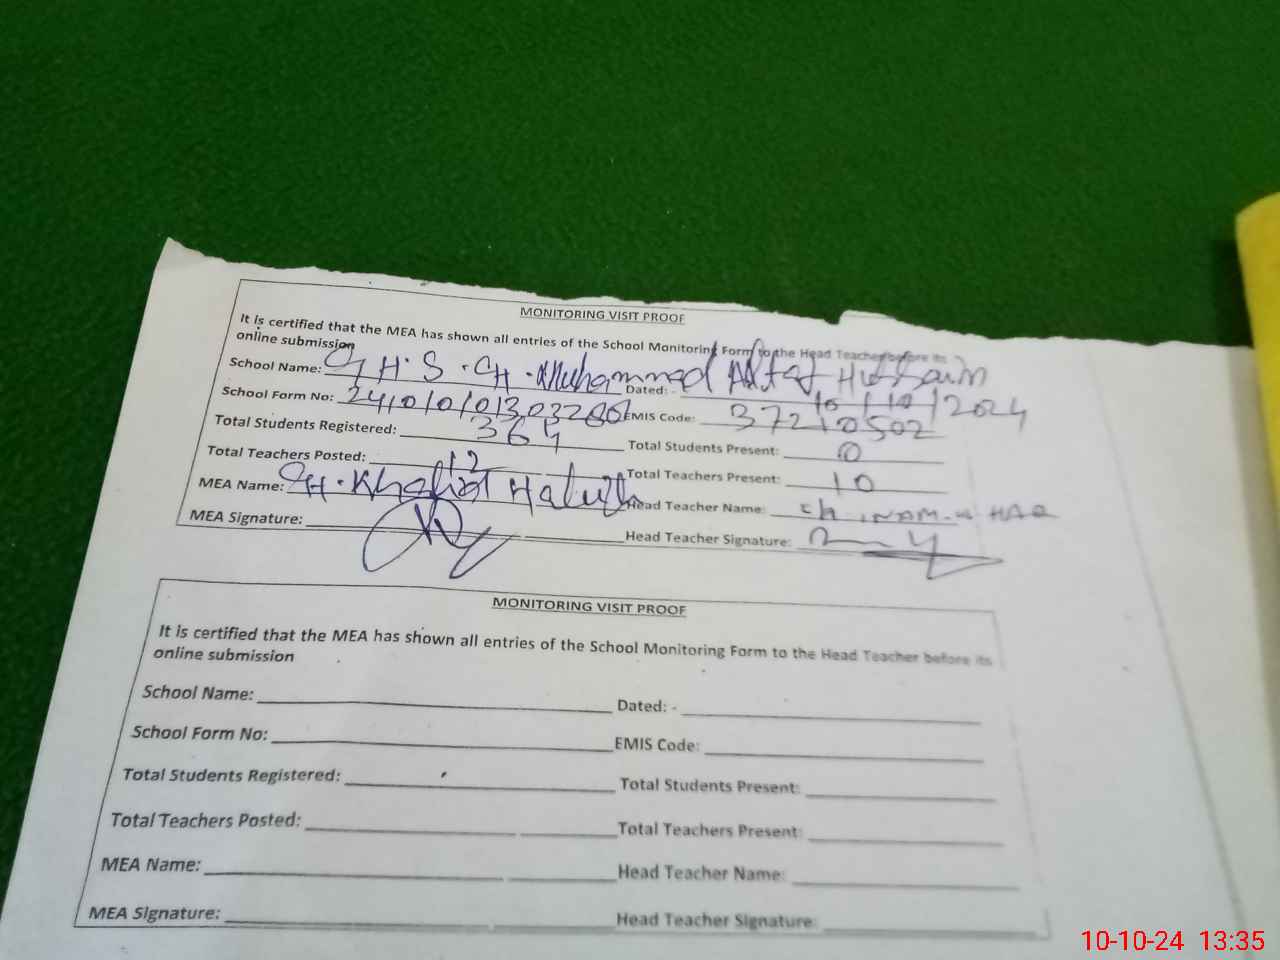 MONITORING VISIT PROOF
It is certified that the MEA has shown all entries of the School Monitoring Form to the Head Teacher before its
online submission
School Name: G H. S. CH. Muhammad Altaf Hussain
Dated: - 10/10/2024
School Form No: EMIS Code: 37210502
Total Students Registered: 364 Total Students Present: 0
Total Teachers Posted: 12 Total Teachers Present: 10
MEA Name: CH. Khalid Head Teacher Name: Ch INAM-U HAQ
MEA Signature: Head Teacher Signature:
MONITORING VISIT PROOF
It is certified that the MEA has shown all entries of the School Monitoring Form to the Head Teacher before its
online submission
School Name: Dated: -
School Form No: EMIS Code:
Total Students Registered: Total Students Present:
Total Teachers Posted: Total Teachers Present:
MEA Name: Head Teacher Name:
MEA Signature: Head Teacher Signature:
10-10-24 13:35